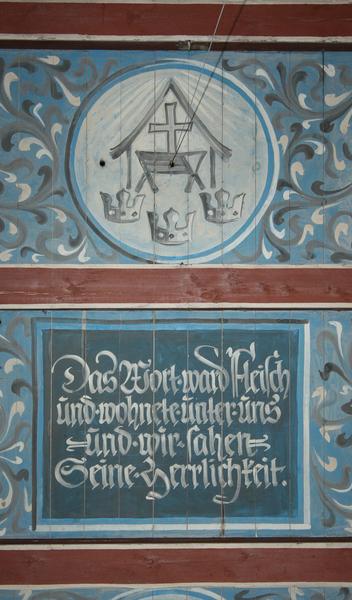 Das Wort·ward Fleisch
und·wohnete·unter·uns
und·wir·sahen
Seine·Herrlichkeit.